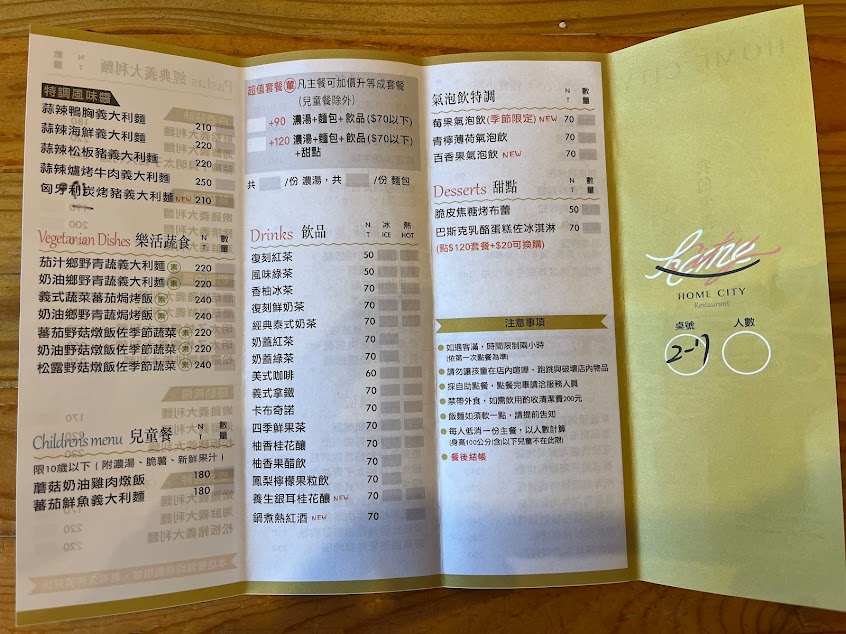 數量
N T
特調風味醬
蒜辣鴨胸義大利麵 210
蒜辣海鮮義大利麵 220
蒜辣松板豬義大利麵 220
蒜辣爐烤牛肉義大利麵 250
匈牙利炭烤豬義大利麵 NEW 210
Vegetarian Dishes 樂活蔬食 N T 數量
茄汁鄉野青蔬義大利麵 素 220
奶油鄉野青蔬義大利麵 素 220
義式蔬菜蕃茄焗烤飯 素 240
奶油鄉野青蔬焗烤飯 素 240
蕃茄野菇燉飯佐季節蔬菜 素 220
奶油野菇燉飯佐季節蔬菜 素 220
松露野菇燉飯佐季節蔬菜 素 240
Children's menu 兒童餐 N T 數量
限10歲以下(附濃湯、脆薯、新鮮果汁)
蘑菇奶油雞肉燉飯 180
蕃茄鮮魚義大利麵 180
超值套餐 單 凡主餐可加價升等成套餐
(兒童餐除外)
+90 濃湯+麵包+飲品($70以下)
+120 濃湯+麵包+飲品($70以下)
+甜點
共 /份 濃湯,共 /份 麵包
Drinks 飲品 N T 冰 ICE 熱 HOT
復刻紅茶 50
風味綠茶 50
香柚冰茶 70
復刻鮮奶茶 70
經典泰式奶茶 70
奶蓋紅茶 70
奶蓋綠茶 70
美式咖啡 60
義式拿鐵 70
卡布奇諾 70
四季鮮果茶 70
柚香桂花釀 70
柚香果醋飲 70
鳳梨檸檬果粒飲 70
養生銀耳桂花釀 NEW 70
鍋煮熱紅酒 NEW 70
氣泡飲特調 N T 數量
莓果氣泡飲(季節限定) NEW 70
青檸薄荷氣泡飲 70
百香果氣泡飲 NEW 70
Desserts 甜點 N T 數量
脆皮焦糖烤布蕾 50
巴斯克乳酪蛋糕佐冰淇淋 70
(點$120套餐+$20可換購)
注意事項
如遇客滿,時間限制兩小時
(依第一次點餐為準)
請勿讓孩童在店內喧嘩、跑跳與破壞店內物品
採自助點餐,點餐完畢請洽服務人員
禁帶外食,如需飲用酌收清潔費200元
飯麵如須軟一點,請提前告知
每人低消一份主餐,以人數計算
(身高100公分(含)以下兒童不在此限)
餐後結帳
home
HOME CITY
Restaurant
桌號 人數
2-7